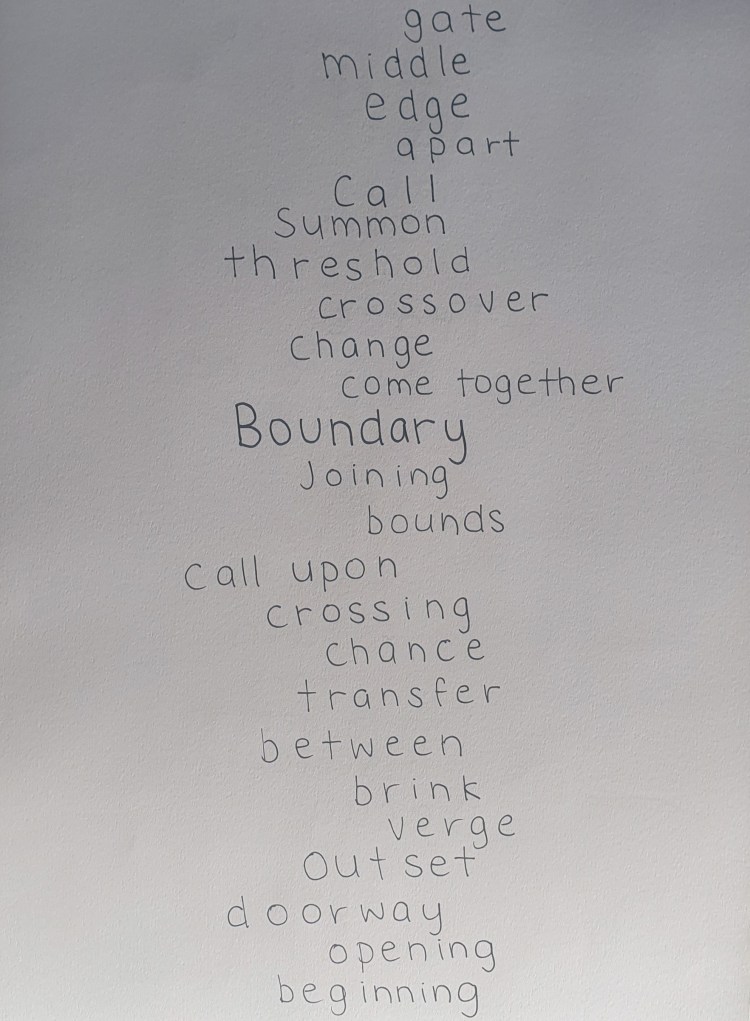 gate
middle
edge
apart
Call
Summon
threshold
crossover
change
come together
Boundary
Joining
bounds
call upon
crossing
chance
transfer
between
brink
verge
outset
doorway
opening
beginning